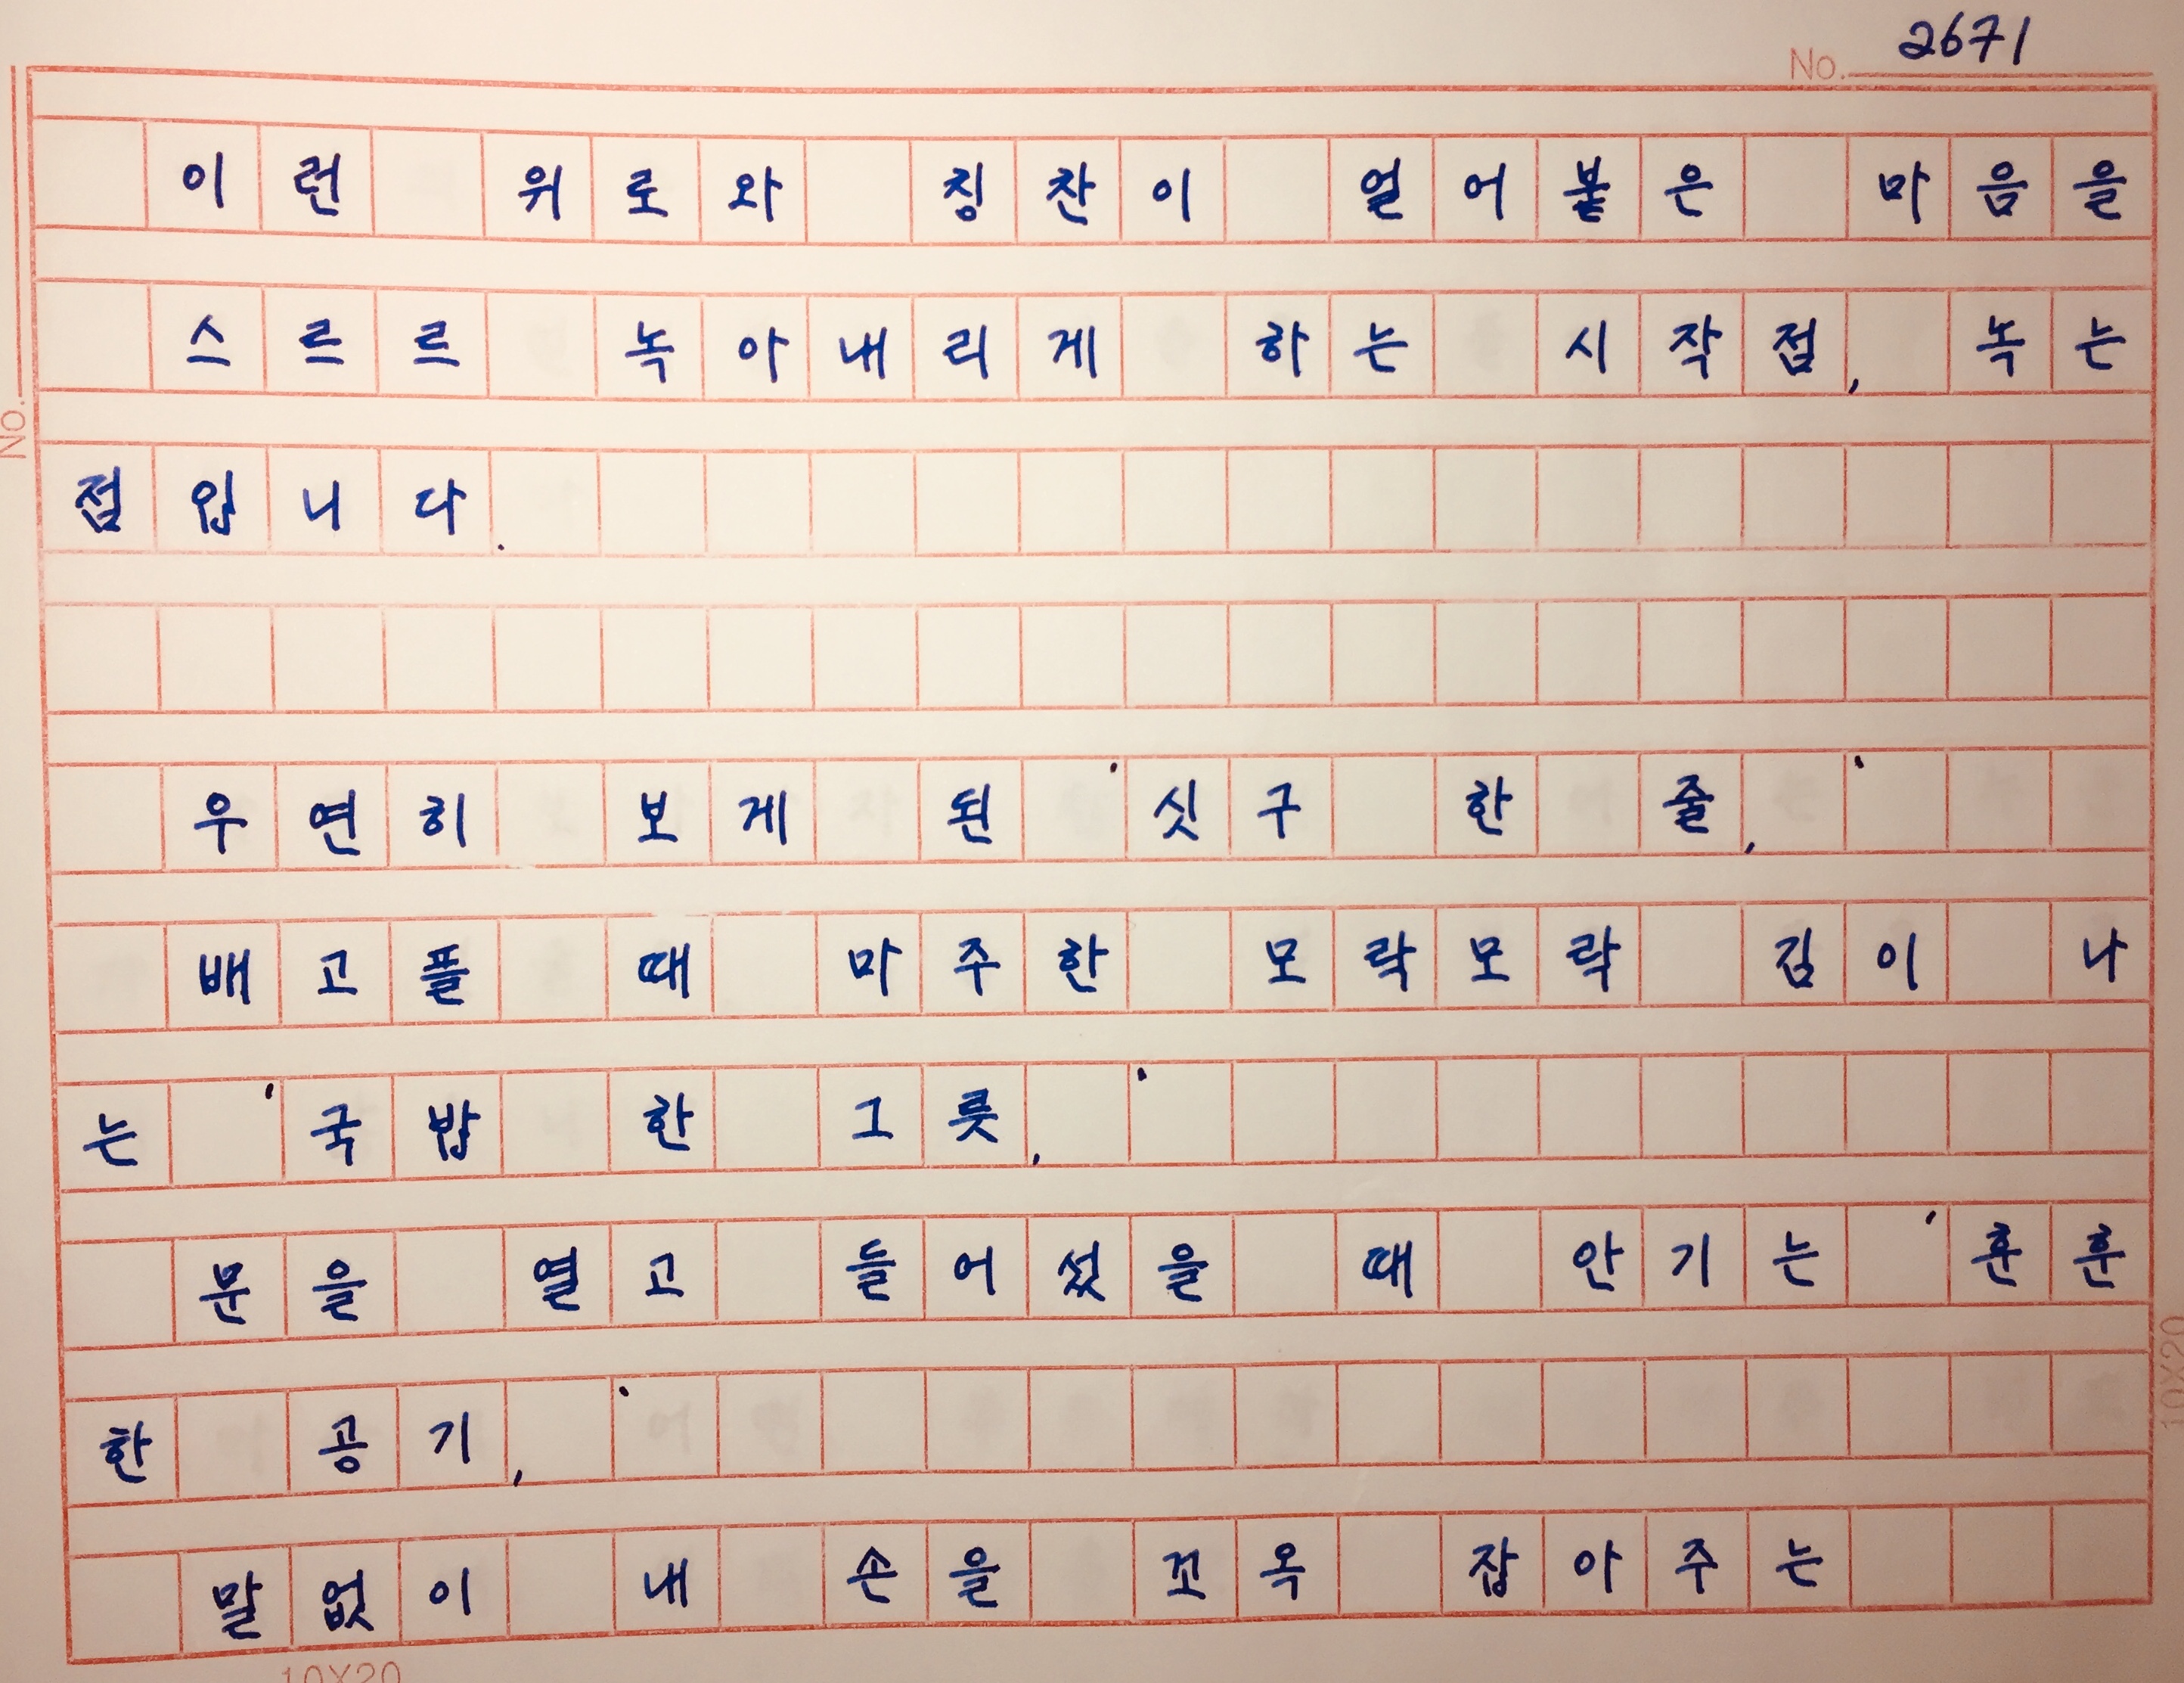 No. 2671
이런 위로와 칭찬이 얼어붙은 마음을
스르르 녹아내리게 하는 시작점, 녹는
점입니다.
우연히 보게 된 '싯구 한 줄,'
배고플 때 마주한 모락모락 김이 나
는 '국밥 한 그릇,'
문을 열고 들어섰을 때 안기는 '훈훈
한 공기,'
말없이 내 손을 꼬옥 잡아주는
No.
10X20
10X20